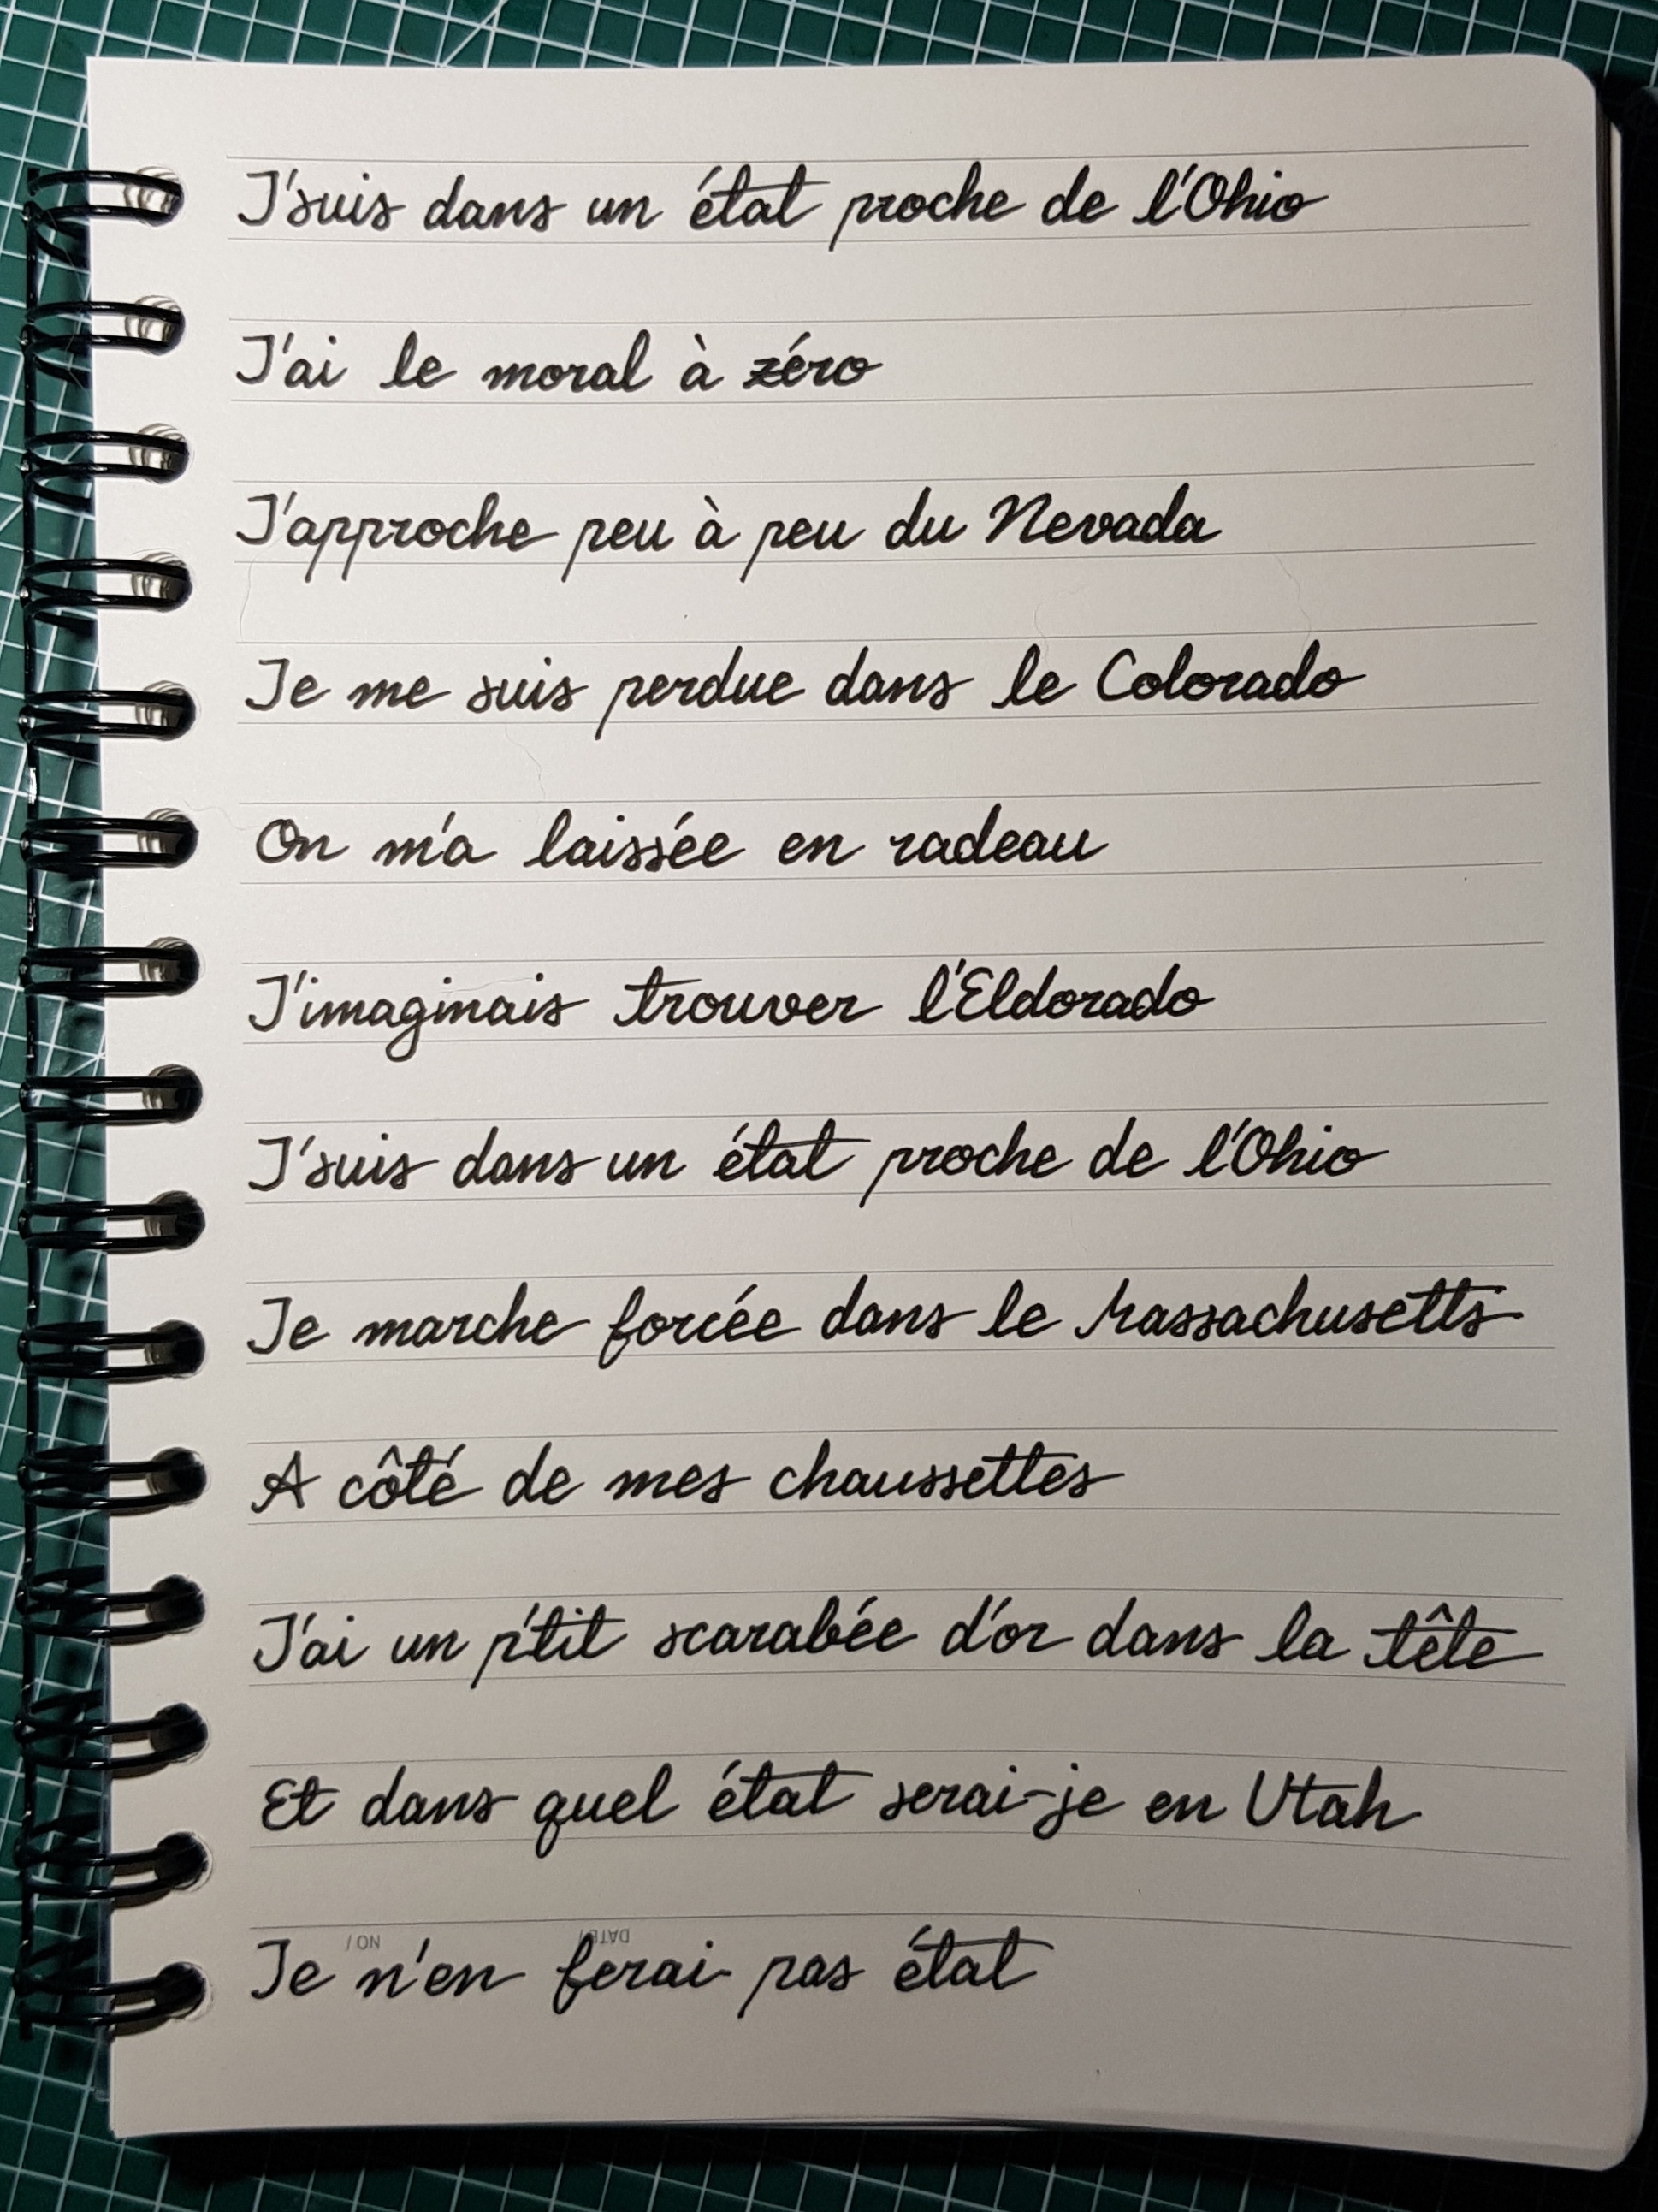 J'suis dans un état proche de l'Ohio
J'ai le moral à zéro
J'approche peu à peu du Nevada
Je me suis perdue dans le Colorado
On m'a laissée en radeau
J'imaginais trouver l'Eldorado
J'suis dans un état proche de l'Ohio
Je marche forcée dans le Massachusetts
A côté de mes chaussettes
J'ai un p'tit scarabée d'or dans la tête
Et dans quel état serai-je en Utah
NO / DATE /
Je n'en ferai pas état